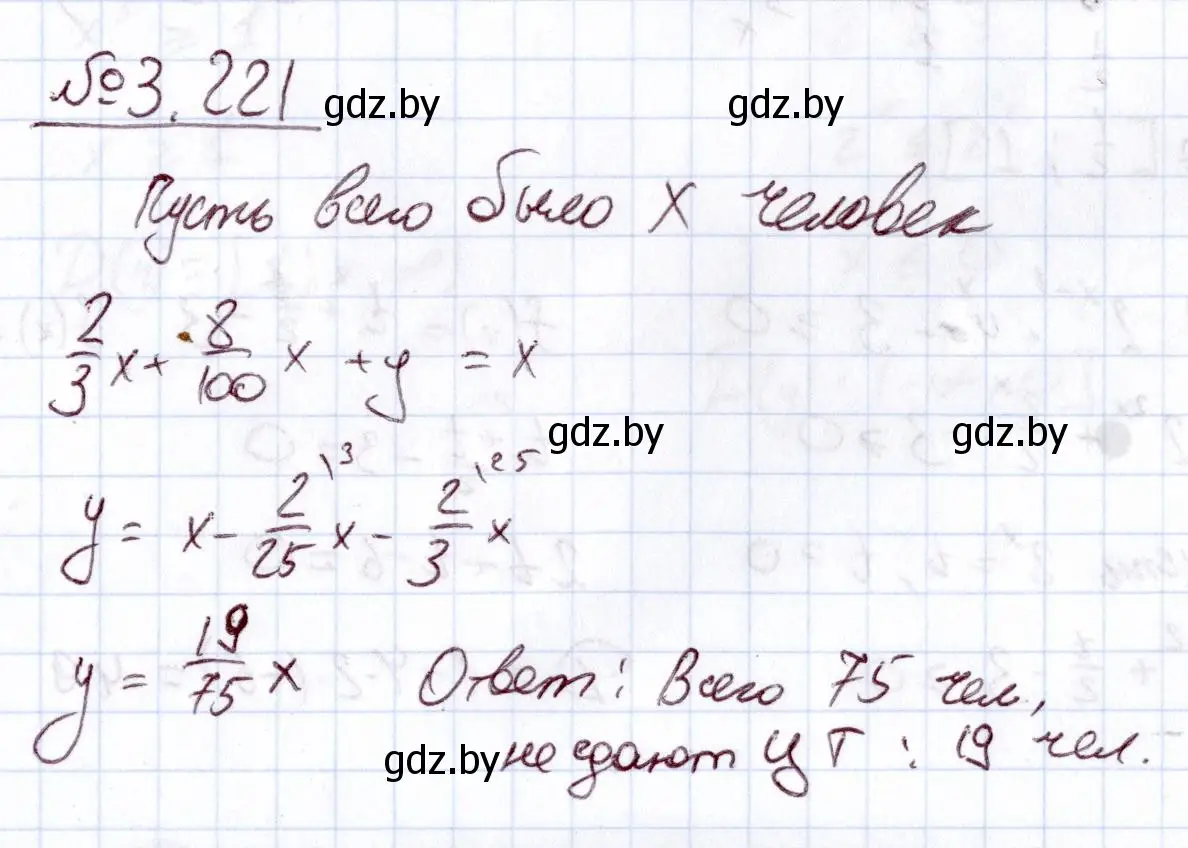 №3.221
gdz.by gdz.by
Пусть всего было х человек
2/3 x + 8/100 x + y = x
gdz.by gdz.by
y = x - 2/25 \3 x - 2/3 \25 x
y = 19/75 x Ответ: Всего 75 чел,
gdz.by не сдают ЦТ: 19 чел.